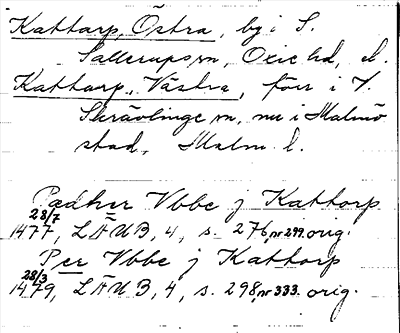 Kattarp, Östra, by i S.
Sallerups sn, Oxie hd, d.
Kattarp, Västra, förr i V.
Skrävlinge sn, nu i Malmö
stad, Malm. l.
Pædher Vbbe j Kattorp
28/7
1477, LÄUB, 4, s. 276, nr 299. orig.
Per Vbbe j Kattorp
28/3
1479, LÄUB, 4, s. 298, nr 333. orig.